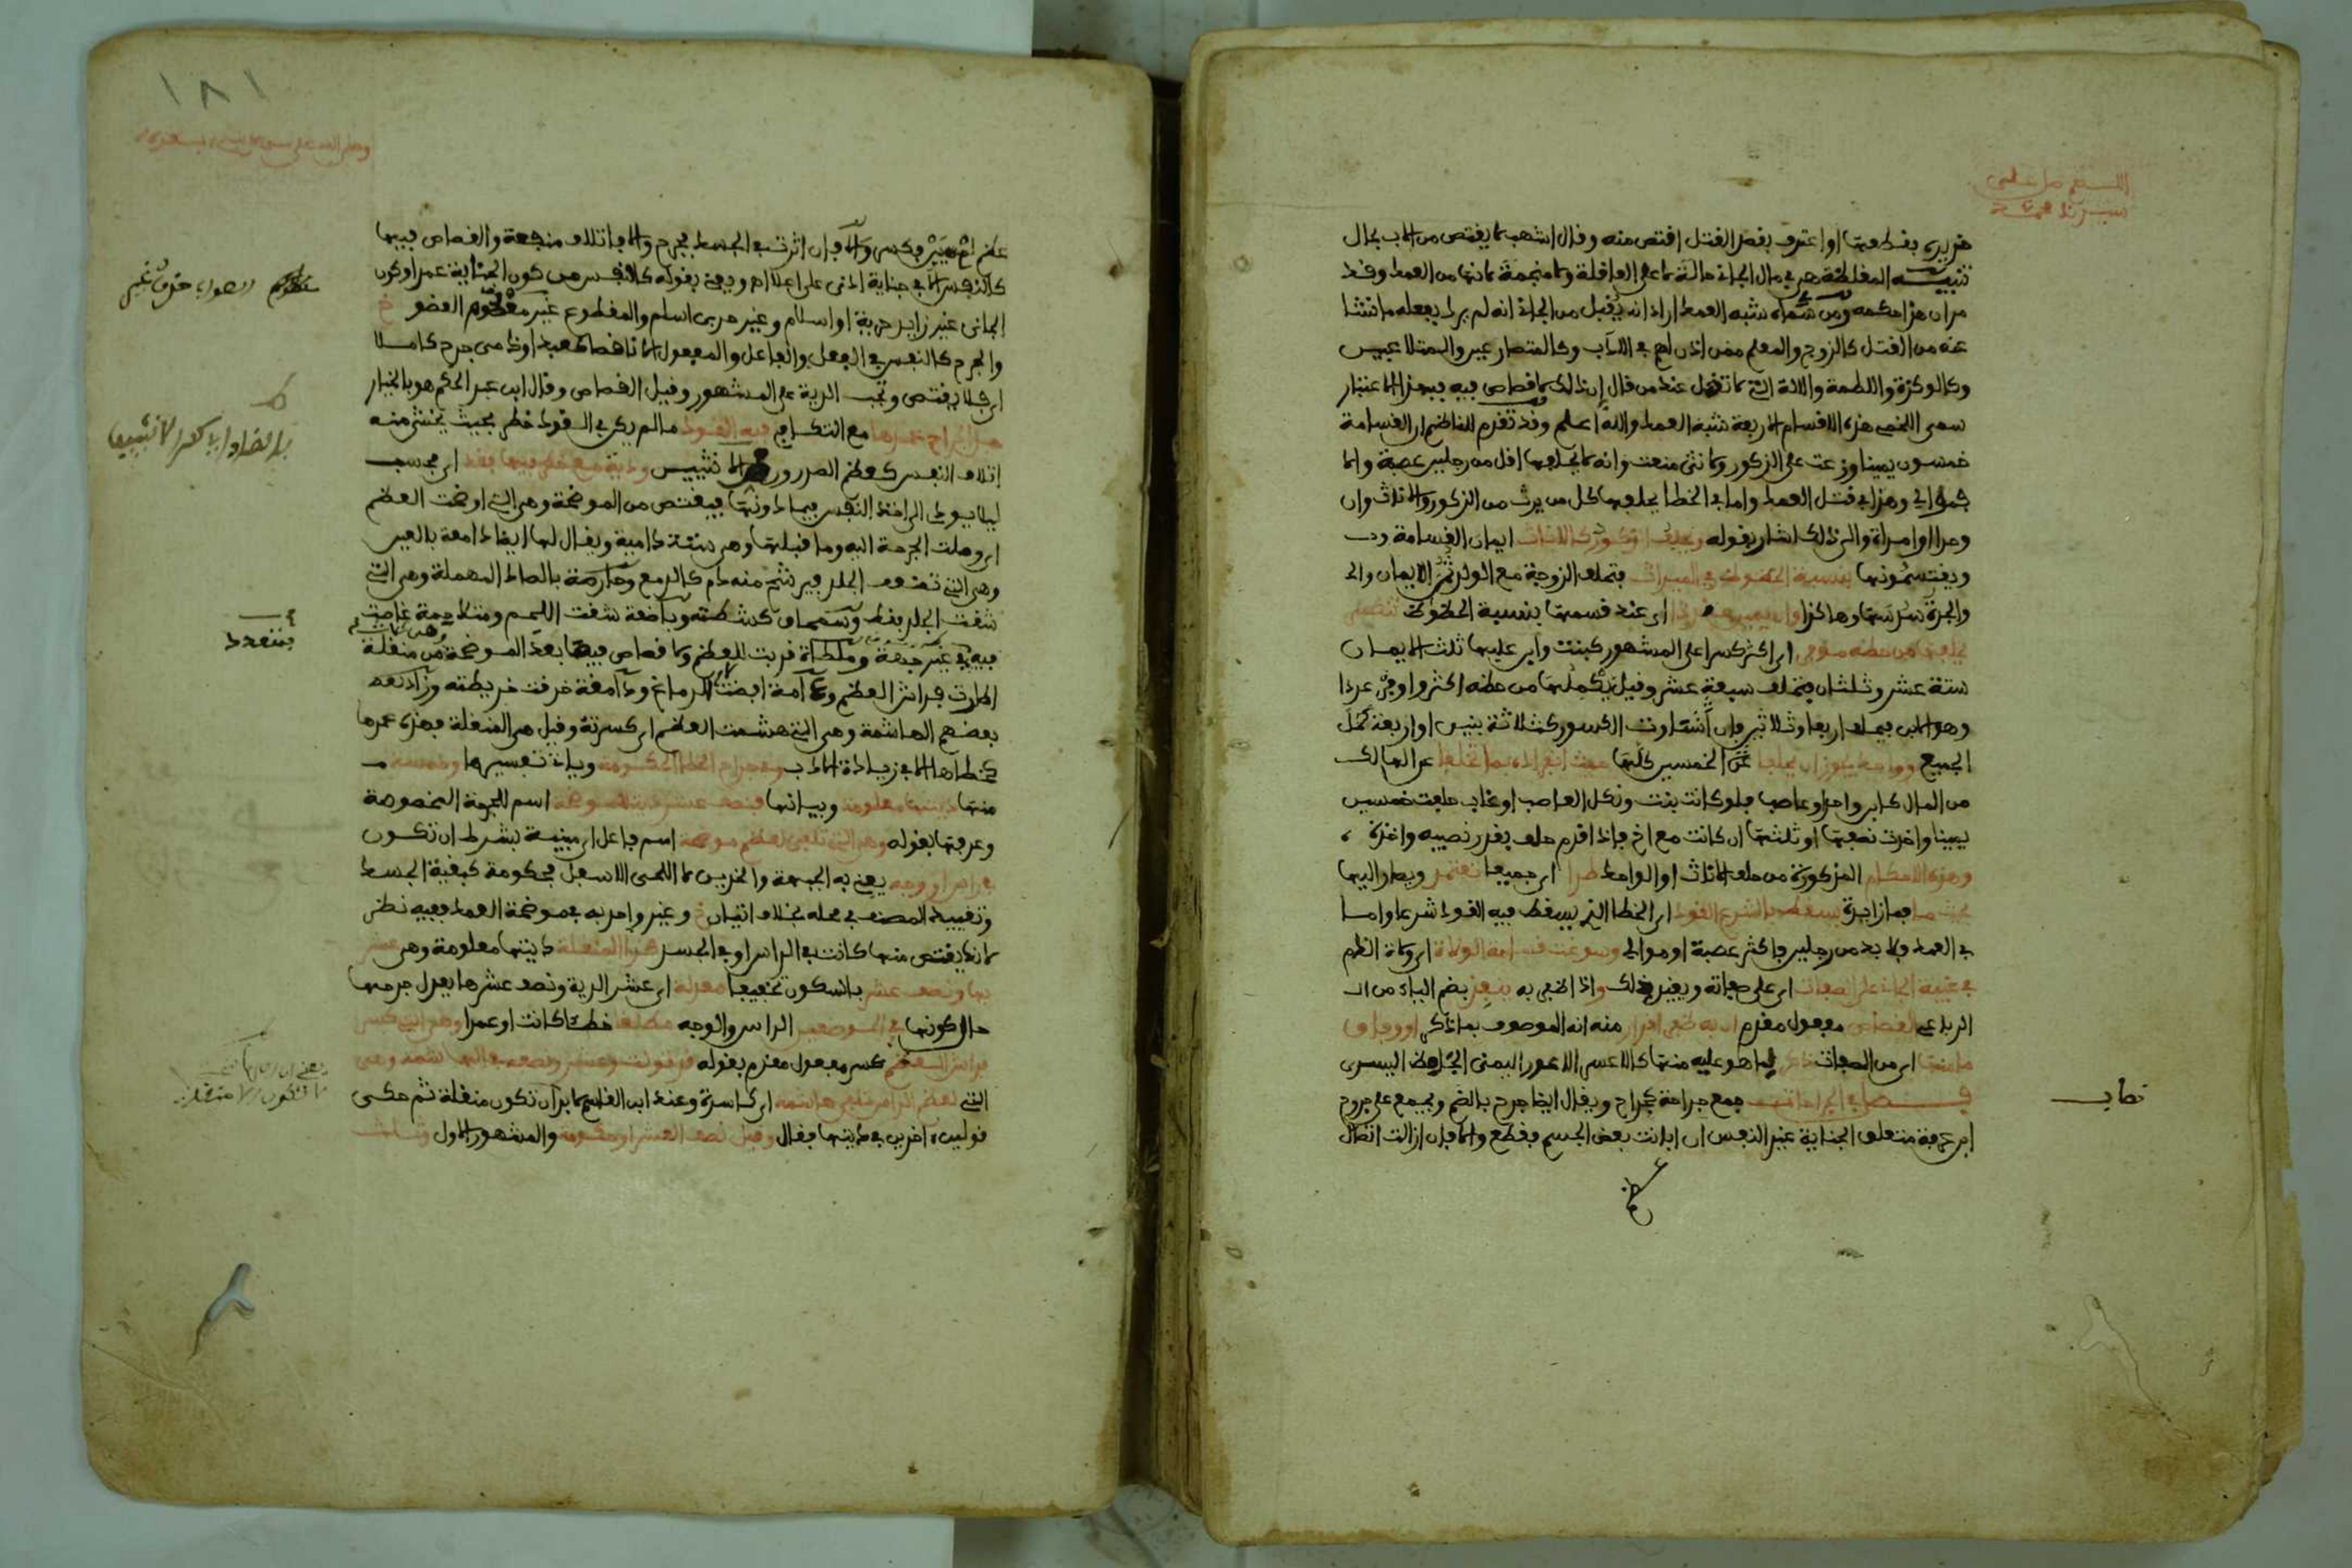 اللهم صل على
سيدنا محمد
هريرة بقطعتها او اعترف بقصد القتل اقتص منه وقال اشهب لا يقتص من الاب بحال
تنبيه المغلظة هي في مال الجاني حالة لا على العاقلة ولا منجمة لانها من العمد وقد
مر ان هذا حكمه ومن سماه شبه العمد اراد انه يقبل من الجاني انه لم يرد بفعله ما نشا
عنه من القتل كالزوج والمعلم ممن اذن لهم في الادب وكالمتصارعين والمتلاعبين
وكالوكزة واللطمة والالة التي لا تقتل عند من قال ان ذلك لا قصاص فيه فبهذا الاعتبار
سمى اللخمي هذه الاقسام الاربعة شبه العمد والله اعلم وقد تقدم للناظم ان القسامة
خمسون يمينا وزعت على الذكور ولانثى منعت وانه لا يحلفها اقل من رجلين عصبة والا
فموالي وهذا في قتل العمد واما في الخطا يحلفها كل من يرث من الذكور والاناث وان
واحدا او امراة والى ذلك اشار بقوله ويحلف الذكور كالاناث ايمان القسامة
ويقتسمونها بنسبة الحظوظ في الميراث فتحلف الزوجة مع الولد ثمن الايمان والـ
والجدة سدسها وهاكذا وان يكن كسر اي عند قسمتها بنسبة الحظوظ
يحلفها من حظه موفى اي اكثر كسرا على المشهور كبنت وابن عليها ثلث الايمان
ستة عشر وثلثان فتحلف سبعة عشر وقيل يكملها من حظه اكثر واوفى عددا
وهو الابن فيحلف اربعا وثلاثين فان تساوت الكسور كثلاثة بنين او اربعة كمل
الجميع وواحد يجوز ان يحلفا عن الخمسين كلها حيث انفراده بما تخلفا عن الهالك
من المال كابن واحد وعاصب فلو كانت بنت ونكل العاصب او غاب حلفت خمسين
يمينا واخذت نصفها او ثلثها ان كانت مع اخ فاذا اقدم حلف بقدر نصيبه واخذه
وهذه الاحكام المذكورة من حلف الاناث او الواحد طرا اي جميعا تعتمد ويصار اليها
بحيث ما فما زايدة يسقط بالشرع القود اي الخطا الذي يسقط فيه القود شرعا واما
في العمد فلا بد من رجلين فاكثر عصبة او موالي وسوغت قسامة الولاة اي ولاة الدم
في غيبة الجاني على الصفات اي على صفاته ويغير ذلك واذا اظفر به ينفذ بضم الياء من انـ
الرباعي القصاص مفعول مقدم ان به ظفر اقرار منه انه الموصوف بما ذكر او وفاق
ما منها اي من الصفات ذكر لما هو عليه منها كالاعسر الاعور اليمنى الجاحظ اليسرى
فصل في الجراحات جمع جراحة كجراح ويقال ايضا جرح بالضم ويجمع على جروح
ابن عرفة متعلق الجناية غير النفس ان ابانت بعض الجسم فقطع والا فان ازالت اتصال
عظم
نصاب
١٨١
عظم لم يبن فكسر والا فان اثرت في الجسد فجرح والا فاتلاف منفعة والقصاص فيهما
كالنفس الا في جناية ادنى على اعلى اه ويعني بقوله كالنفس من كون الجناية عمدا وكون
الجاني غير زايد حرية او اسلام وغير حربي اسلم والمقطوع غير معصوم العضو
والجرح كالنفس في الفعل والفاعل والمفعول الا ناقصا كعبد او ذمي جرح كاملا
اي فلا يقتص وتجب الدية على المشهور وقيل القصاص وقال ابن عبد الحكم هو بالخيار
جل الجراح عمدها مع التكافي فيه القود ما لم يكن في القود خطر بحيث يخشى منه
اتلاف النفس كعظم الصدر ورض الانثيين ودية مع خطر فيها فقد اي فحسب
ليلا يودي الى اخذ النفس فيما دونها فيقتص من الموضحة وهي التي اوضحت العظم
اي وصلت الجرحة اليه وما قبلها وهي ستة دامية ويقال لها ايضا دامعة بالعين
وهي التي تضعف الجلد فيرشح منه دم كالدمع وحارصة بالصاد المهملة وهي التي
شقت الجلد فقط وسمحاق كشطته وباضعة شقت اللحم ومتلاحمة غاصت
فيه في غير جهة وملطاة قربت للعظم ولا قصاص فيما بعد الموضحة من منقلة
اطارت فراش العظم وآمة افضت للدماغ ودامغة خرقت خريطته وزاد بعض
بعضهم الهاشمة وهي التي هشمت العظم اي كسرته وقيل هي المنقلة فهذه عمدها
كخطاها الا في زيادة الادب وفي جراح الخطا الحكومة وياتي تفسيرها وخمسة
منها ديتها معلومة وبيانها فنصف عشر في الموضحة اسم للجرحة المخصوصة
وعرفها بقوله وهي التي تلفى لعظم موضحه اسم فاعل اي مبينة بشرط ان تكون
في راس او وجه يعني به الجبهة والخدين لا اللحى الاسفل فحكومة كبقية الجسد
وتقييد المصنف في محله بخلاف اتيان خ وغير واحد به في موضحة العمد ففيه نظر
لانه يقتص منها كانت في الراس او في الجسد هذا المنقلة ديتها معلومة وهي عشر
بها ونصف عشر بالسكون تخفيفا معدله اي عشر الدية ونصف عشرها يعدل جرحها
حال كونها في الموضعين الراس والوجه مطلقا خطا كانت او عمدا وهي التي كسر
فراش العظم كسر مفعول مقدم بقوله
التي لعظم الراس تلفى هاشمة اي كاسرة وعند ابن القاسم لا بد ان تكون منقلة ثم حكى
قولين اخرين في ديتها فقال وقيل نصف العشر او حكومة والمشهور الاول وثلث
فتتعدد